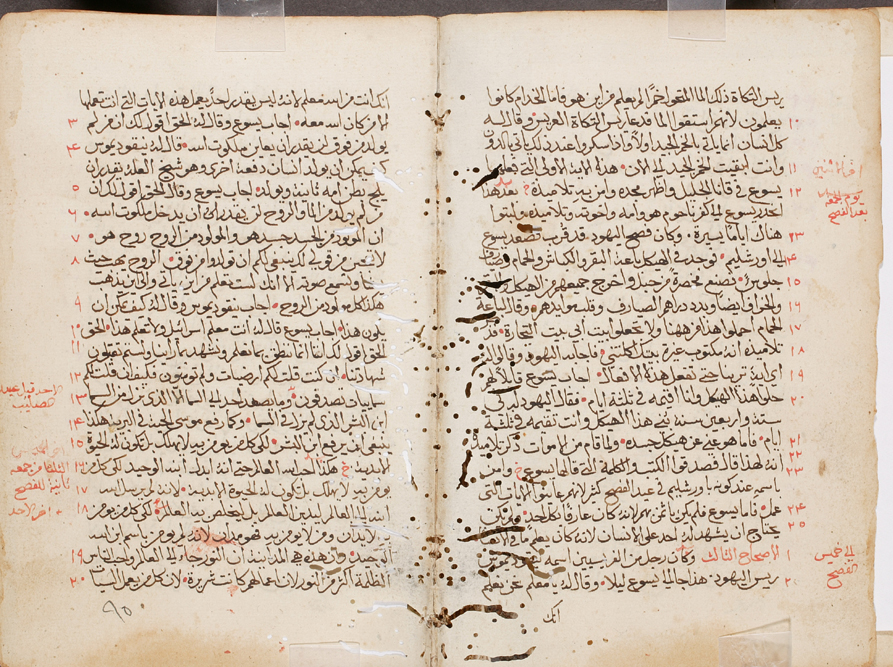 ريس التكاة ذلك الما المتحول خمرًا لم يعلم من اين هو فاما الخدام كانوا
١٠ يعلمون لانهم استقوا الما فدعا ريس التكاة العريس وقال له
كل انسان انما ياتي بالخمر الجيد اولا واذا سكروا عند ذلك ياتي بالدون
١١ وانت ابقيت الخمر الجيد الى الان هذا الاية الاولى التي فعلها
١٢ يسوع في قانا الجليل واظهر مجده وامن به تلاميذه بعد هذا
يوم الجمعة بعد الفصح
انحدر يسوع الى كفرناحوم هو وامه واخوته وتلاميذه ولبثوا
١٣ هناك اياما يسيرة وكان فصح اليهود قد قرب فصعد يسوع
١٤ الى اورشليم فوجد في الهيكل باعة البقر والكباش والحمام
١٥ جلوس فصنع مخصرة من حبل واخرج جميعهم من الهيكل
١٦ والخراف ايضا وبدد دراهم الصيارف وقلب موايدهم وقال لباعة
١٧ الحمام احملوا هذا من ههنا ولا تجعلوا بيت ابي بيت التجارة فذكر
١٨ تلاميذه انه مكتوب غيرة بيتك اكلتني فاجاب اليهود وقالوا له
١٩ اي اية ترينا حتى تفعل هذه الافعال اجاب يسوع قال لهم
٢٠ حلوا هذا الهيكل وانا اقيمه في ثلثة ايام فقال اليهود
ستة واربعين سنة بني هذا الهيكل وانت تقيمه في ثلثة
٢١ ايام فاما هو عني عن هيكل جسده ولما قام من الاموات ذكر تلاميذه
٢٢ انه هذا قال فصدقوا الكتب والكلمة التي قالها يسوع وامن
٢٣ باسمه عند كونه باورشليم في عيد الفصح كثير لانهم عاينوا الايات التي
٢٤ عمل فاما يسوع فلم يكن لانه كان عارفا بكل احد
٢٥ يحتاج ان يشهد له احد على الانسان لانه كان يعلم ما في
١ الاصحاح الثالث وكان رجل من الفريسيين اسمه
الخميس الفصح
٢ ريس اليهود هذا جا الى يسوع ليلا وقال له يا معلم نحن نعلم
انك
انك انت من الله معلم لانه ليس يقدر احدًا يعمل هذه الايات التي انت تعملها
٣ الا من كان الله معه اجاب يسوع وقال له الحق اقول لك ان من لم
٤ يولد من فوق لن يقدر ان يعاين ملكوت الله قال له نيقوديموس
كيف يمكن ان يولد انسان دفعة اخرى وهو شيخ العله يقدر ان
٥ يلج بطن امه ثانية ويولد اجاب يسوع وقال الحق اقول لك ان
٦ من لم يولد من الما والروح لن يقدر ان يدخل ملكوت الله
٧ ان المولود من الجسد جسد هو والمولود من الروح روح هو
٨ لا تعجبن من قولي لك ينبغي لكم ان تولدوا من فوق الروح تهب حيث
تشا وتسمع صوته الا انك لست تعلم من اين تاتي والى اين تذهب
٩ هكذا كل مولود من الروح اجاب نيقوديموس وقال له كيف يمكن ان
١٠ يكون هذا اجاب يسوع قال له انت معلم اسرائيل ولا تعلم هذا الحق
١١ الحق اقول لك اننا انما ننطق بما نعلم ونشهد بما راينا ولستم تقبلون
١٢ شهادتنا ان كنت قلت لكم ارضيات ولم تومنون فكيف ان قلت لكم
١٣ السمايات تصدقون وما صعد احد الى السما الا الذي نزل من السما
١٤ ابن البشر الذي لم يزل في السما وكما رفع موسى الحية في البرية هكذا
١٥ ينبغي ان يرفع ابن البشر لكي كل من يومن به لا يهلك بل تكون له الحيوة
١٦ الابدية هكذا احب الله العالم حتى انه ابنه الوحيد لكي كل من
ثانية للفصح
١٧ يومن به لا يهلك بل تكون له الحيوة الابدية لانه لم يرسل الله
١٨ ابنه الى العالم ليدين العالم بل ليخلص به العالم لكي كل من يومن
به لا يدان ومن لا يومن به فهو مدان لانه لم يومن باسم ابن الله
١٩ الوحيد وان هذه هي المداينة ان النور جا الى العالم واحب الناس
٢٠ الظلمة اكثر من النور لان اعمالهم كانت شريرة لان كل من يعمل السيات
٩٥